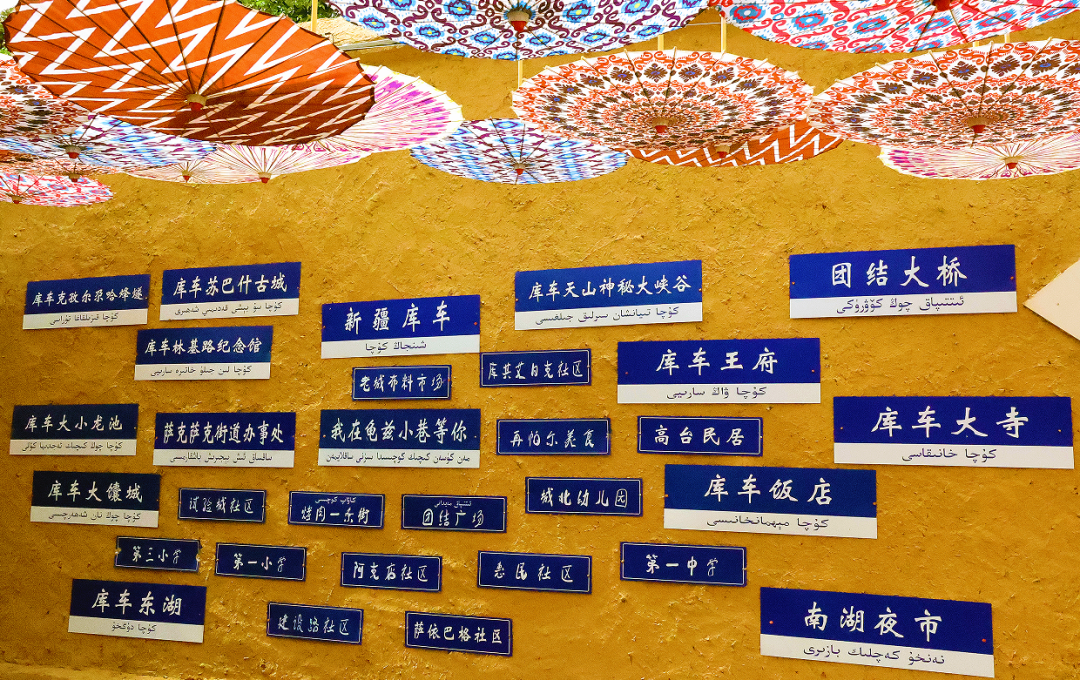 库车克孜尔尕哈烽燧
كۇچا قىزىلقاغا تۇراسى
库车苏巴什古城
كۇچا سۇ بېشى قەدىمىي شەھىرى
新疆库车
شىنجاڭ كۇچا
库车天山神秘大峡谷
كۇچا تىيانشان سىرلىق جىلغىسى
团结大桥
ئىتتىپاق چوڭ كۆۋرۈكى
库车林基路纪念馆
老城布料市场
库其艾日克社区
库车王府
كۇچا ۋاڭ سارىيى
库车大小龙池
萨克萨克街道办事处
我在龟兹小巷等你
再帕尔美食
高台民居
库车大寺
كۇچا خانىقاسى
库车大馕城
كۇچا چوڭ نان شەھەرچىسى
试验城社区
كاۋاپ كوچىسى
烤肉一条街
ئىتتىپاق مەيدانى
团结广场
城北幼儿园
库车饭店
كۇچا مېھمانخانىسى
第三小学
第一小学
阿克店社区
悉民社区
第一中学
库车东湖
كۇچا دۇڭخۇ
建设路社区
萨依巴格社区
南湖夜市
نەنخۇ كەچلىك بازىرى